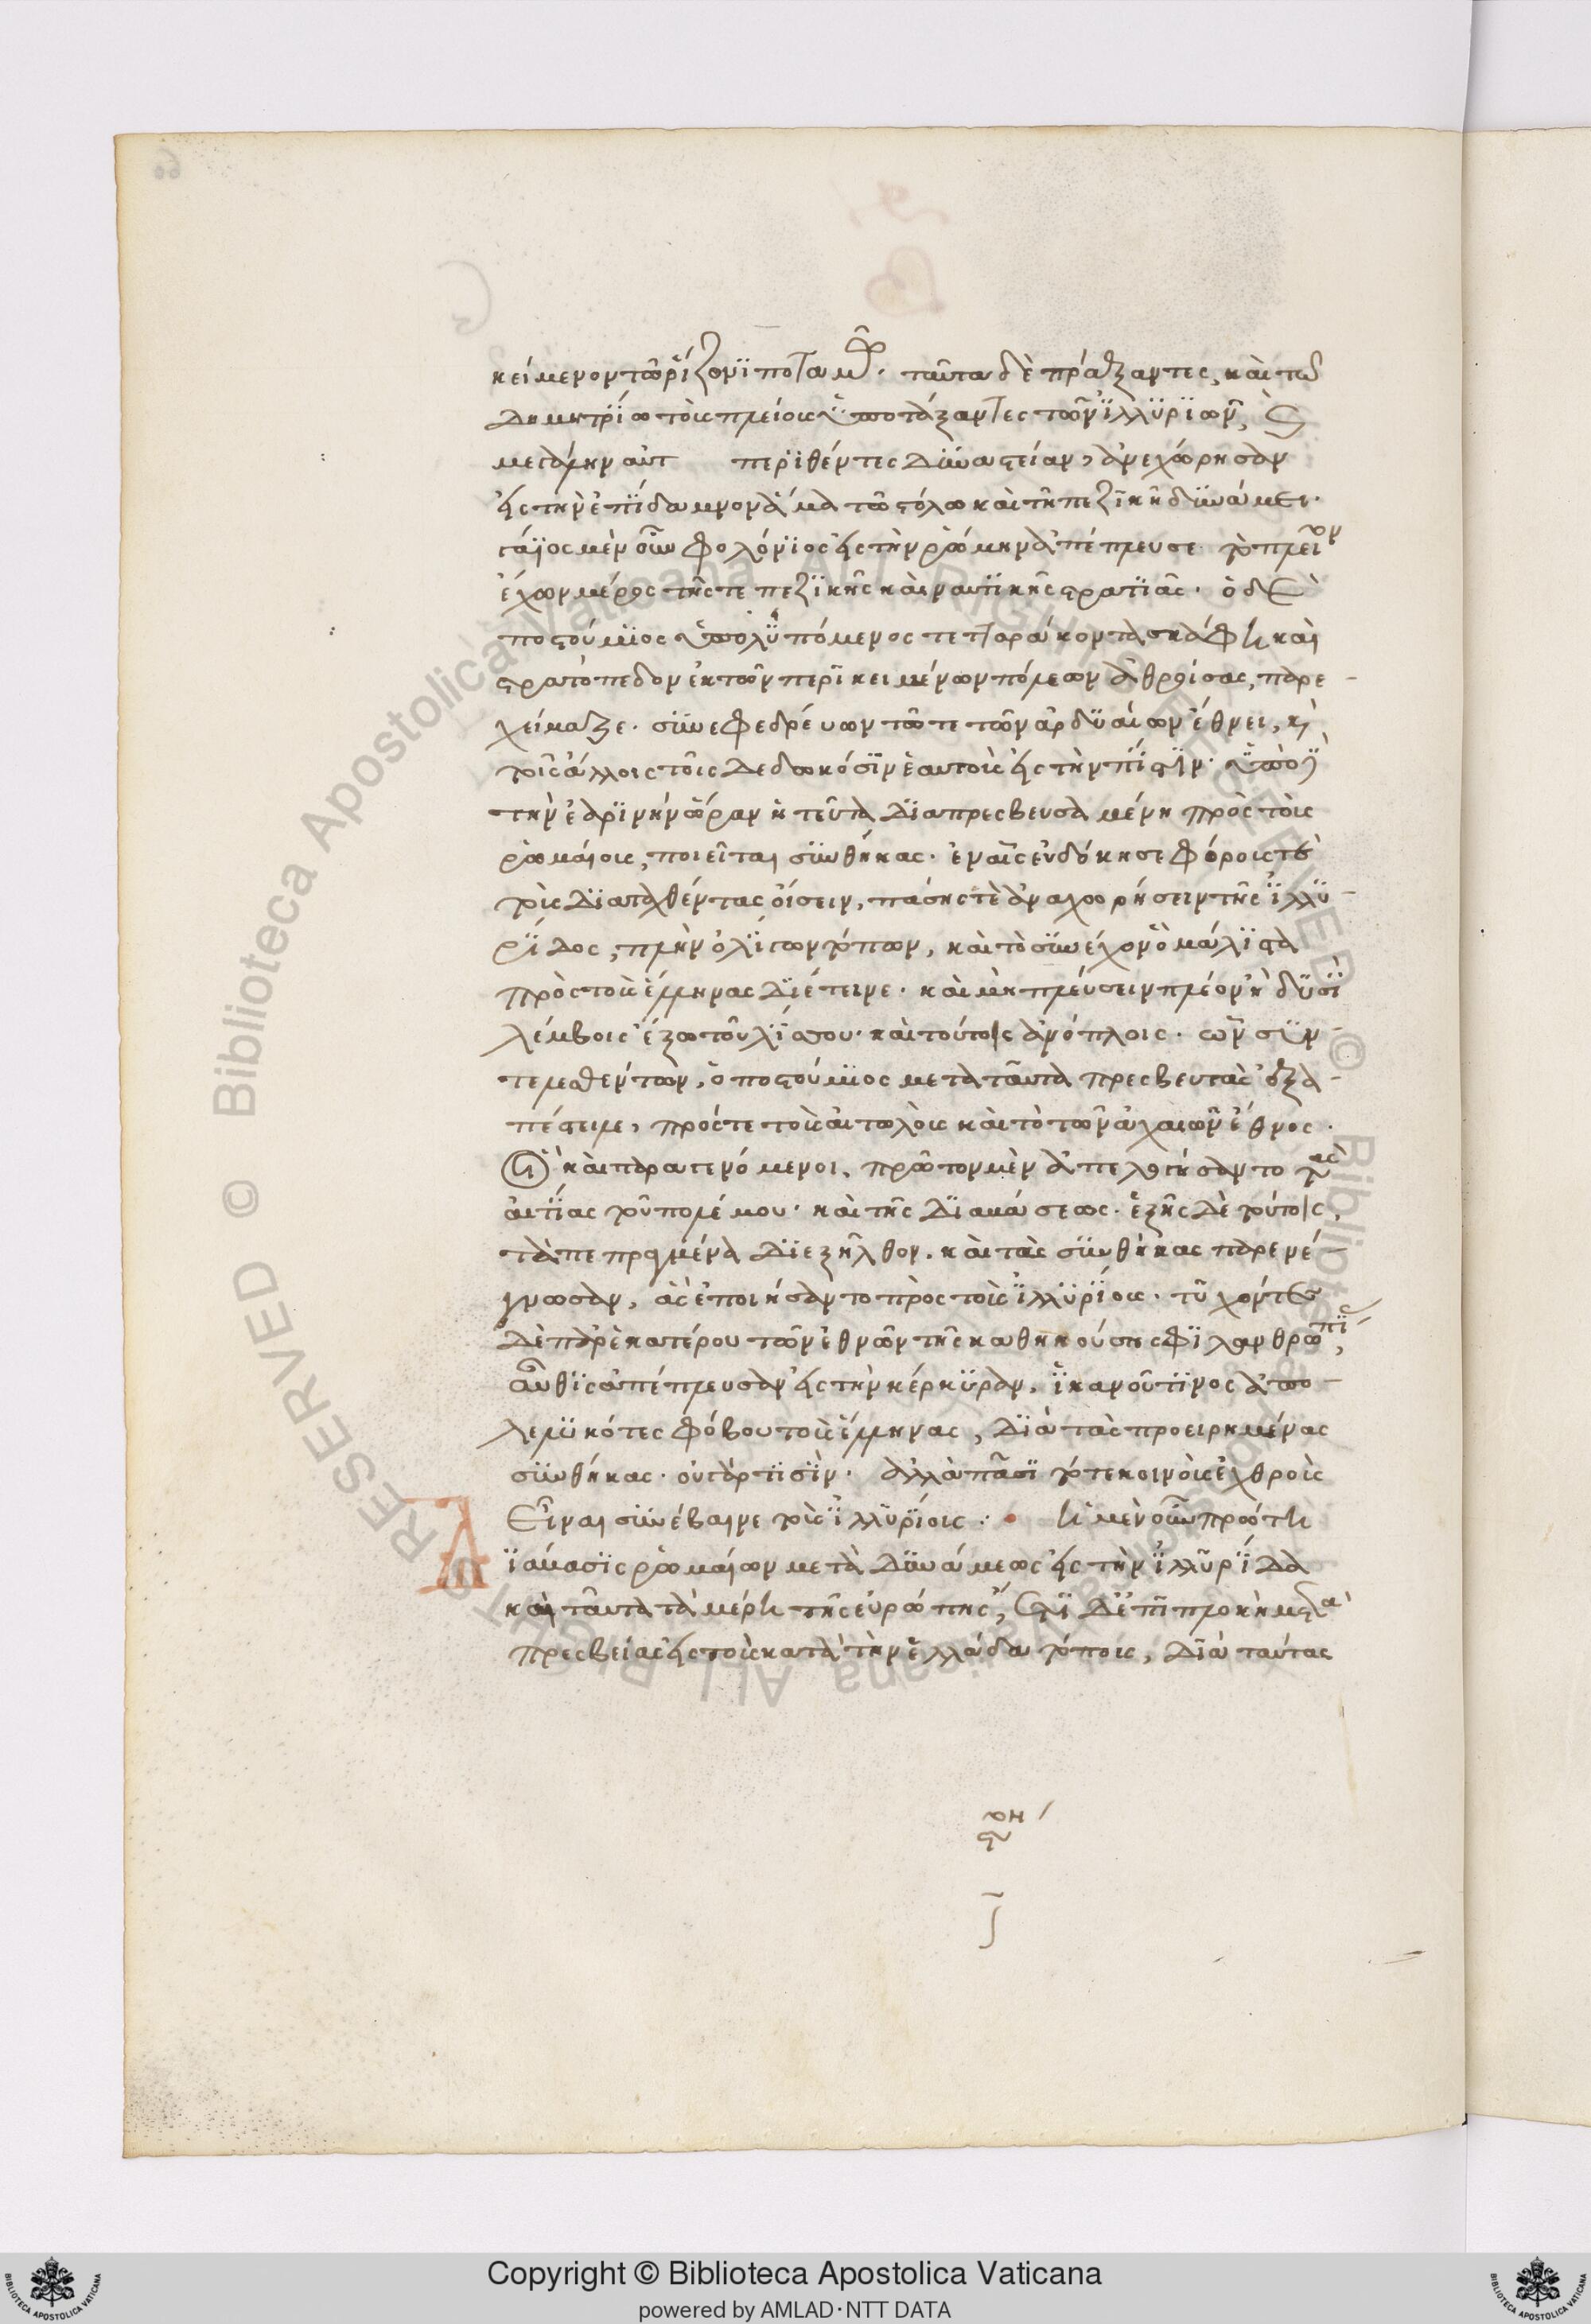 κείμενον τῶ ῥίζονϊ ποταμῶ. ταῦτα δὲ πράξαντες, καὶ τῶ
Δημητρίω τοὺς πλείους ὑποτάξαντες τῶν ἰλλυριῶν,
μεγάλην αὐτ περιθέντες δυναστείαν, ἀνεχώρησαν
εἰς τὴν ἐπίδαμνον ἅμα τῶ στόλω καὶ τῆ πεζικῆ δυνάμει.
γάϊος μὲν οὖν φολούϊος εἰς τὴν ῥώμην ἀπέπλευσε τὸ πλεῖον
ἔχων μέρος τῆς τε πεζικῆς καὶ ναυτικῆς στρατιᾶς. ὁ δὲ
ποστούμιος ὑπολιπόμενος τετταράκοντα σκάφη καὶ
στρατόπεδον ἐκ τῶν περὶ κειμένων πόλεων ἀθροίσας, παρε-
χείμαζε. συνεφεδρεύων τῶ τε τῶν ἀρδυαίων ἔθνει, καὶ
τοῖς ἄλλοις τοῖς δεδωκόσιν ἑαυτοὺς εἰς τὴν πίστιν. ὑπὸ
τὴν ἐαρινὴν ὥραν ἡ τεῦτα διαπρεσβευσαμένη πρὸς τοὺς
ῥωμαίους, ποιεῖται συνθήκας. ἐν αἷς εὐδόκησε φόρους τε
τοὺς διαταχθέντας οἴσειν, πάσης τε ἀναχωρήσειν τῆς ἰλλυ-
ρίδος, πλὴν ὀλίγων τόπων, καὶ τὸ συνέχον ὃ μάλιστα
πρὸς τοὺς ἕλληνας διέτεινε. καὶ μὴ πλεύσειν πλέον ἢ δυσὶ
λέμβοις ἔξω τοῦ λίσσου. καὶ τούτοις ἀνόπλοις. ὧν συν-
τελεσθέντων, ὁ ποστούμιος μετὰ ταῦτα πρεσβευτὰς ἐξα-
πέστειλε, πρός τε τοὺς αἰτωλοὺς καὶ τὸ τῶν ἀχαιῶν ἔθνος.
οἳ καὶ παραγενόμενοι, πρῶτον μὲν ἀπελογήσαντο τὰς
αἰτίας τοῦ πολέμου. καὶ τῆς διαβάσεως. ἑξῆς δὲ τούτοις,
τὰ πεπραγμένα διεξῆλθον. καὶ τὰς συνθήκας παρανέ-
γνωσαν, ἃς ἐποιήσαντο πρὸς τοὺς ἰλλυριούς. τυχόντες
δὲ παρ' ἑκατέρου τῶν ἐθνῶν τῆς καθηκούσης φιλανθρωπίας,
αὖθις ἀπέπλευσαν εἰς τὴν κέρκυραν. ἱκανοῦ τινος ἀπο-
λελυκότες φόβου τοὺς ἕλληνας, διὰ τὰς προειρημένας
συνθήκας. οὐ γάρ τισιν. ἀλλὰ πᾶσι τότε κοινοὺς ἐχθροὺς
εἶναι συνέβαινε τοὺς ἰλλυριούς. ἡ μὲν οὖν πρώτη
Διάβασις ῥωμαίων μετὰ δυνάμεως εἰς τὴν ἰλλυρίδα
καὶ ταῦτα τὰ μέρη τῆς εὐρώπης, ἔτι δ' ἐπιπλοκὴ μετὰ
πρεσβείας εἰς τοὺς κατὰ τὴν ἑλλάδα τόπους, διὰ ταύτας
Copyright © Biblioteca Apostolica Vaticana
powered by AMLAD·NTT DATA